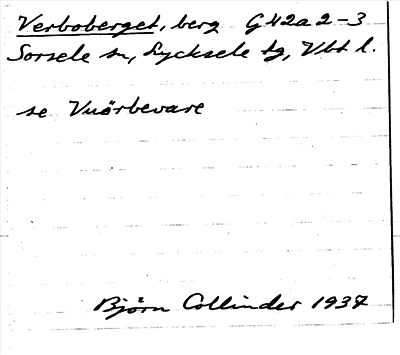 Verboberget, berg G42a2-3
Sorsele sn, Lycksele tg, Vbt l.
se Vuärbevare
Bjørn Collinder 1937